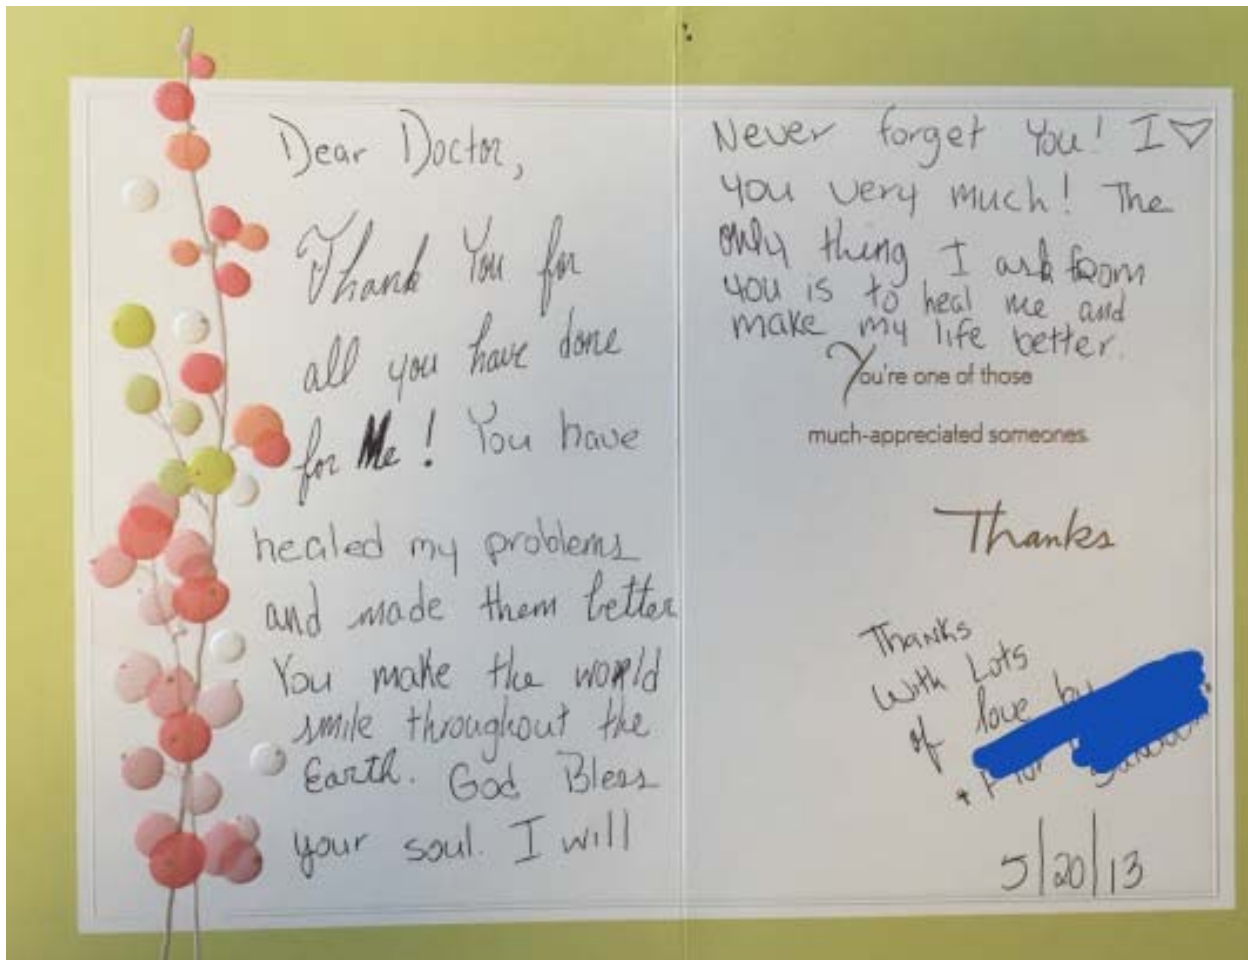 Dear Doctor,
Thank You for
all you have done
for Me! You have
healed my problems
and made them better
You make the world
smile throughout the
Earth. God Bless
your soul. I will
Never forget You! I ♡
you very much! The
only thing I ask from
you is to heal me and
make my life better.
You're one of those
much-appreciated someones.
Thanks
Thanks
With Lots
of love by
5/20/13